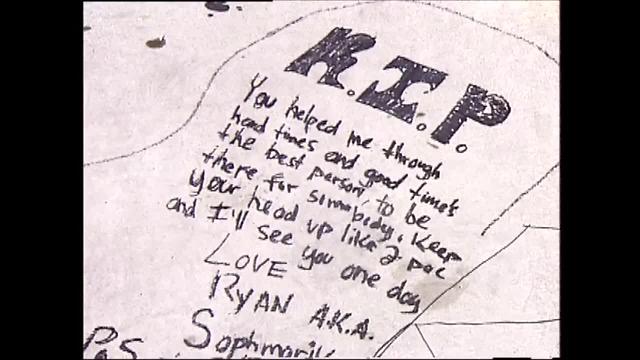 R.I.P.
You helped me through
hard times and good time's
the best person, to be
there for somabody. Keep
your head up like 2 pac
and I'll see you one day
LOVE
RYAN A.K.A.
P.S.